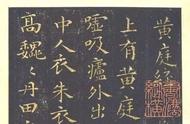 黄庭經
上有黄庭
噓吸廬外出
中人衣朱衣
高魏〻丹田